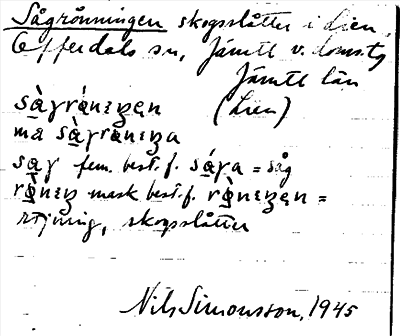 Sågrönningen skogsslåtter i Lien,
Offerdals sn, Jämtl v. doms.ty
Jämtl län
(Lien)
sàgrónıŋen
ma sàgrònıŋa
sag fem. best.f. sága = såg
rònıŋ mask best.f. rònıŋen =
röjning, skogsslåtter
Nils Simonsson, 1945